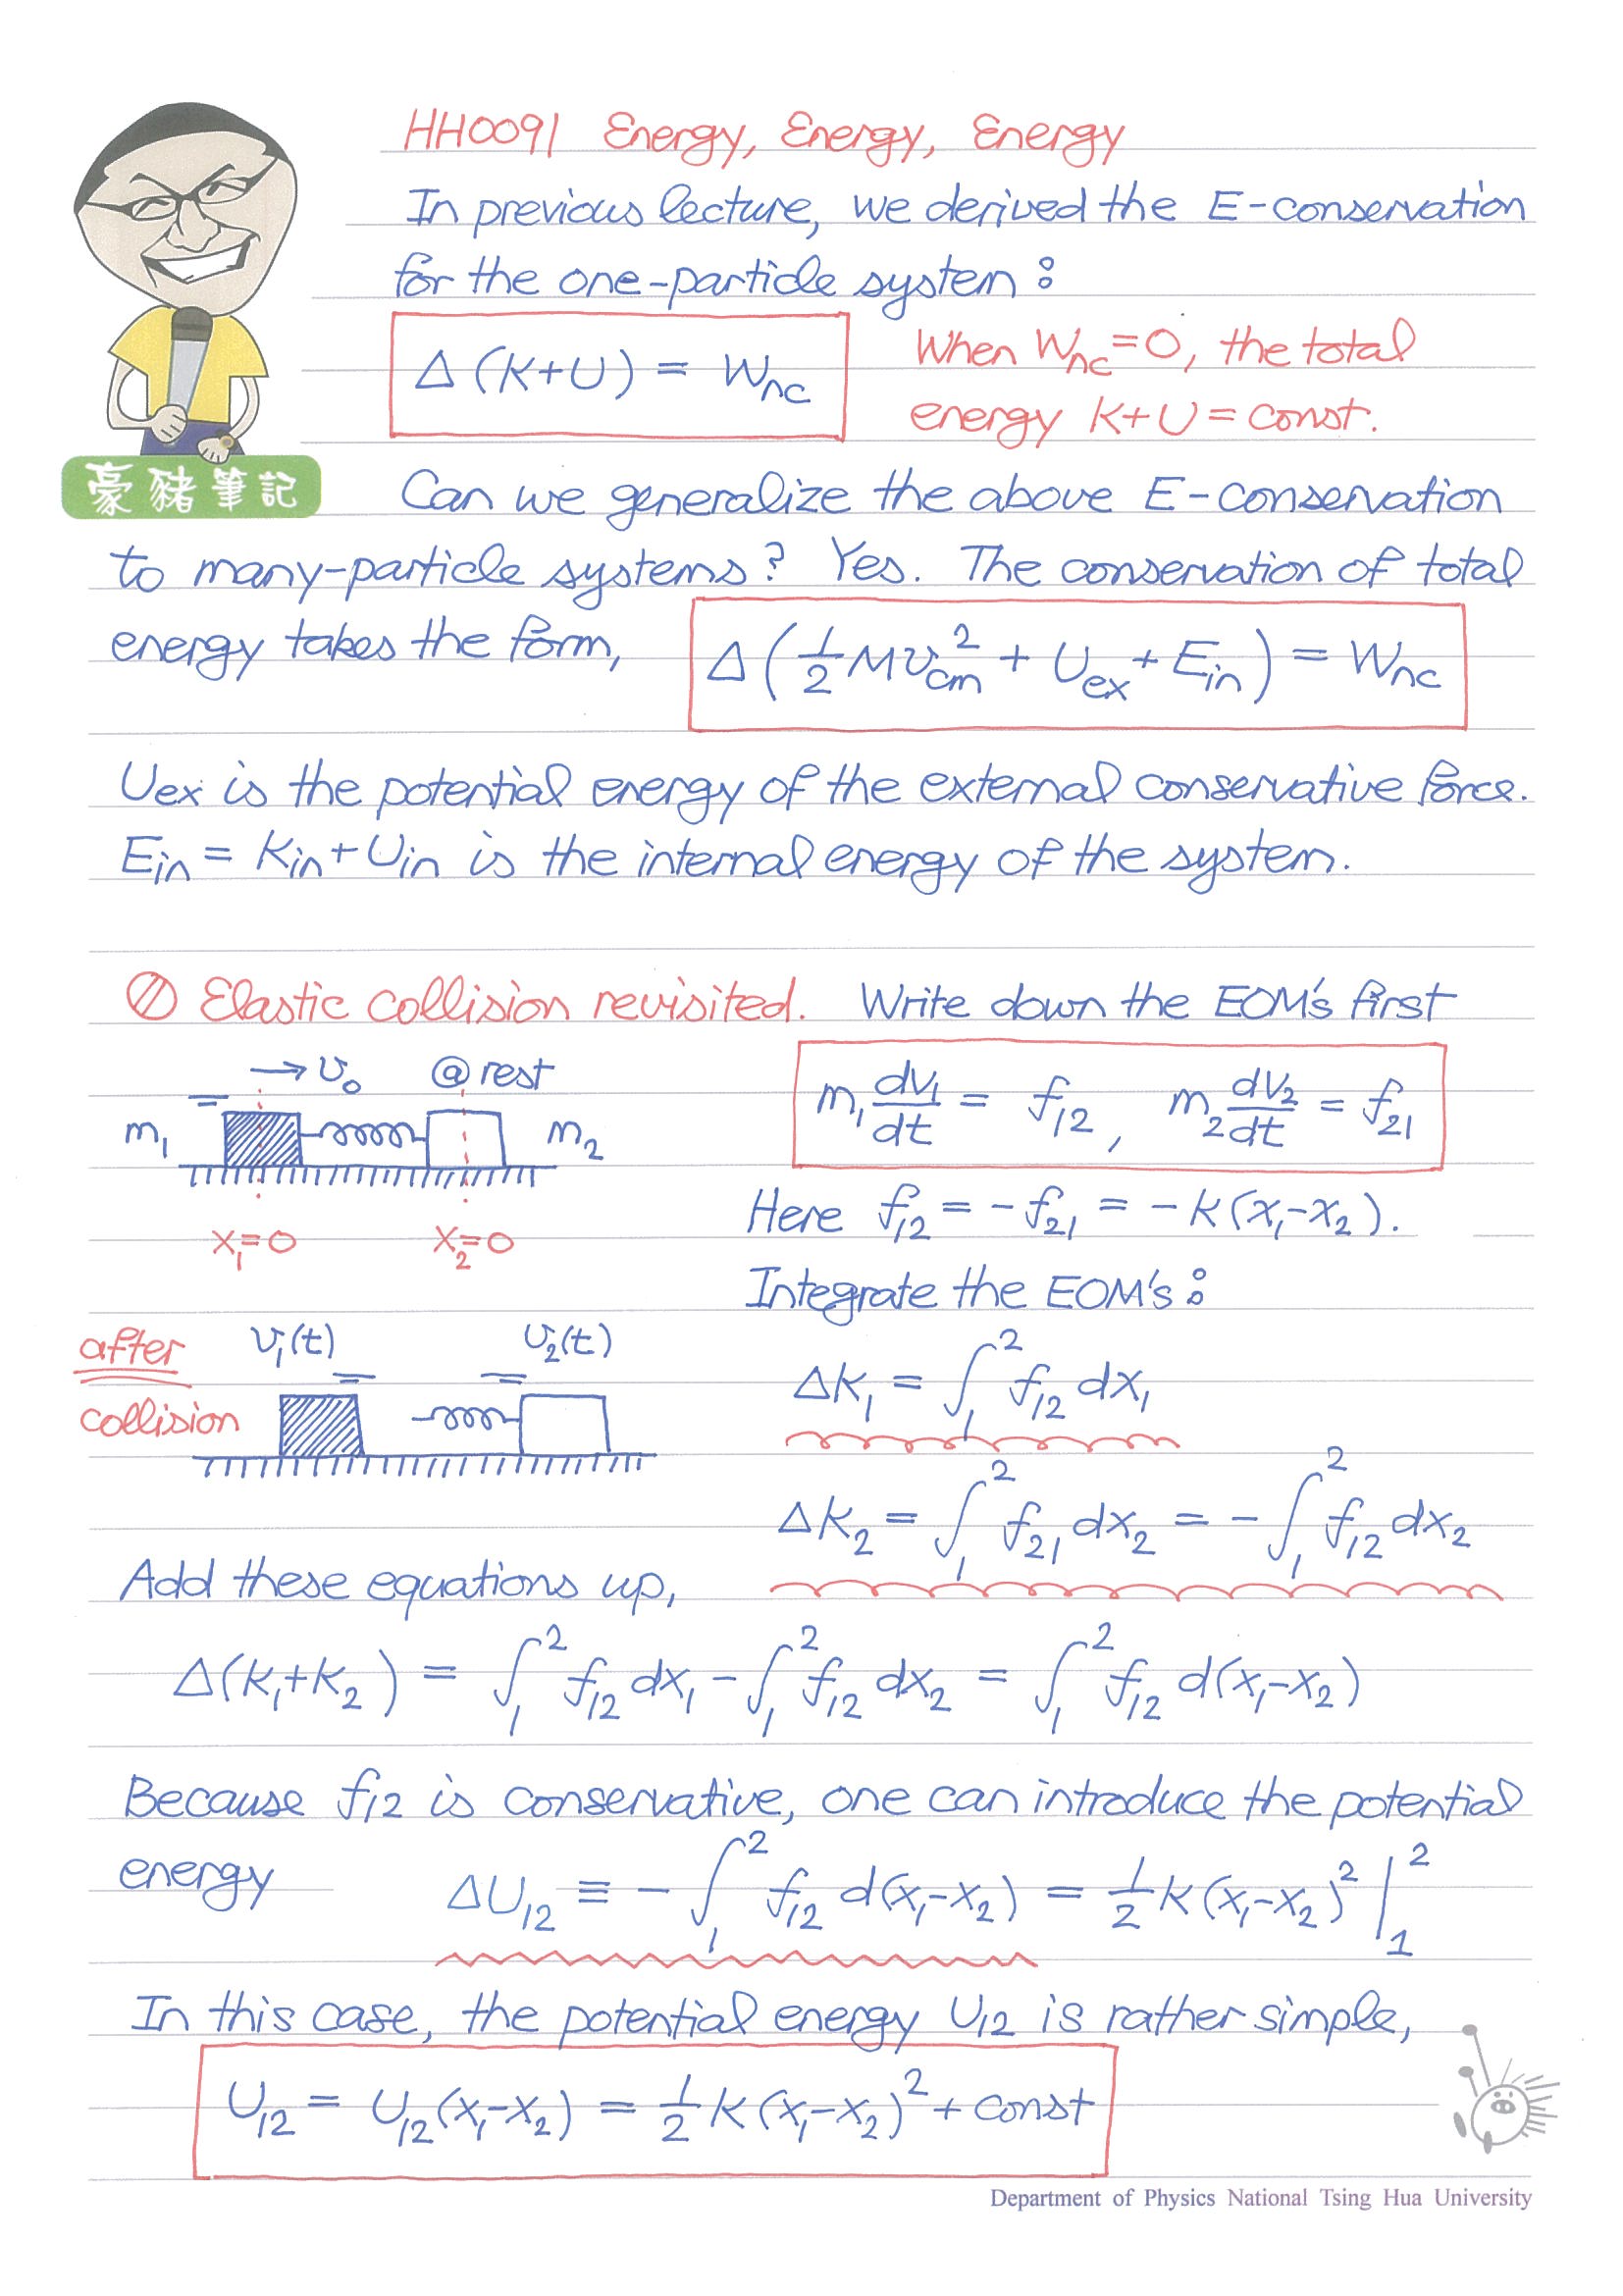 HH0091 Energy, Energy, Energy
In previous lecture, we derived the E-conservation
for the one-particle system:
Δ(K+U) = Wnc
When Wnc=0, the total
energy K+U = const.
豪豬筆記
Can we generalize the above E-conservation
to many-particle systems? Yes. The conservation of total
energy takes the form,
Δ(½Mv²cm + Uex + Ein) = Wnc
Uex is the potential energy of the external conservative force.
Ein = Kin + Uin is the internal energy of the system.
Elastic collision revisited. Write down the EOM's first
→ v₀ @ rest
m₁ m₂
x₁=0 x₂=0
m₁ dv₁/dt = f₁₂, m₂ dv₂/dt = f₂₁
Here f₁₂ = -f₂₁ = -k(x₁-x₂).
Integrate the EOM's:
after
collision
v₁(t) v₂(t)
ΔK₁ = ∫₁² f₁₂ dx₁
ΔK₂ = ∫₁² f₂₁ dx₂ = -∫₁² f₁₂ dx₂
Add these equations up,
Δ(K₁+K₂) = ∫₁² f₁₂ dx₁ - ∫₁² f₁₂ dx₂ = ∫₁² f₁₂ d(x₁-x₂)
Because f₁₂ is conservative, one can introduce the potential
energy ΔU₁₂ ≡ -∫₁² f₁₂ d(x₁-x₂) = ½k(x₁-x₂)²|₁²
In this case, the potential energy U₁₂ is rather simple,
U₁₂ = U₁₂(x₁-x₂) = ½k(x₁-x₂)² + const
Department of Physics National Tsing Hua University